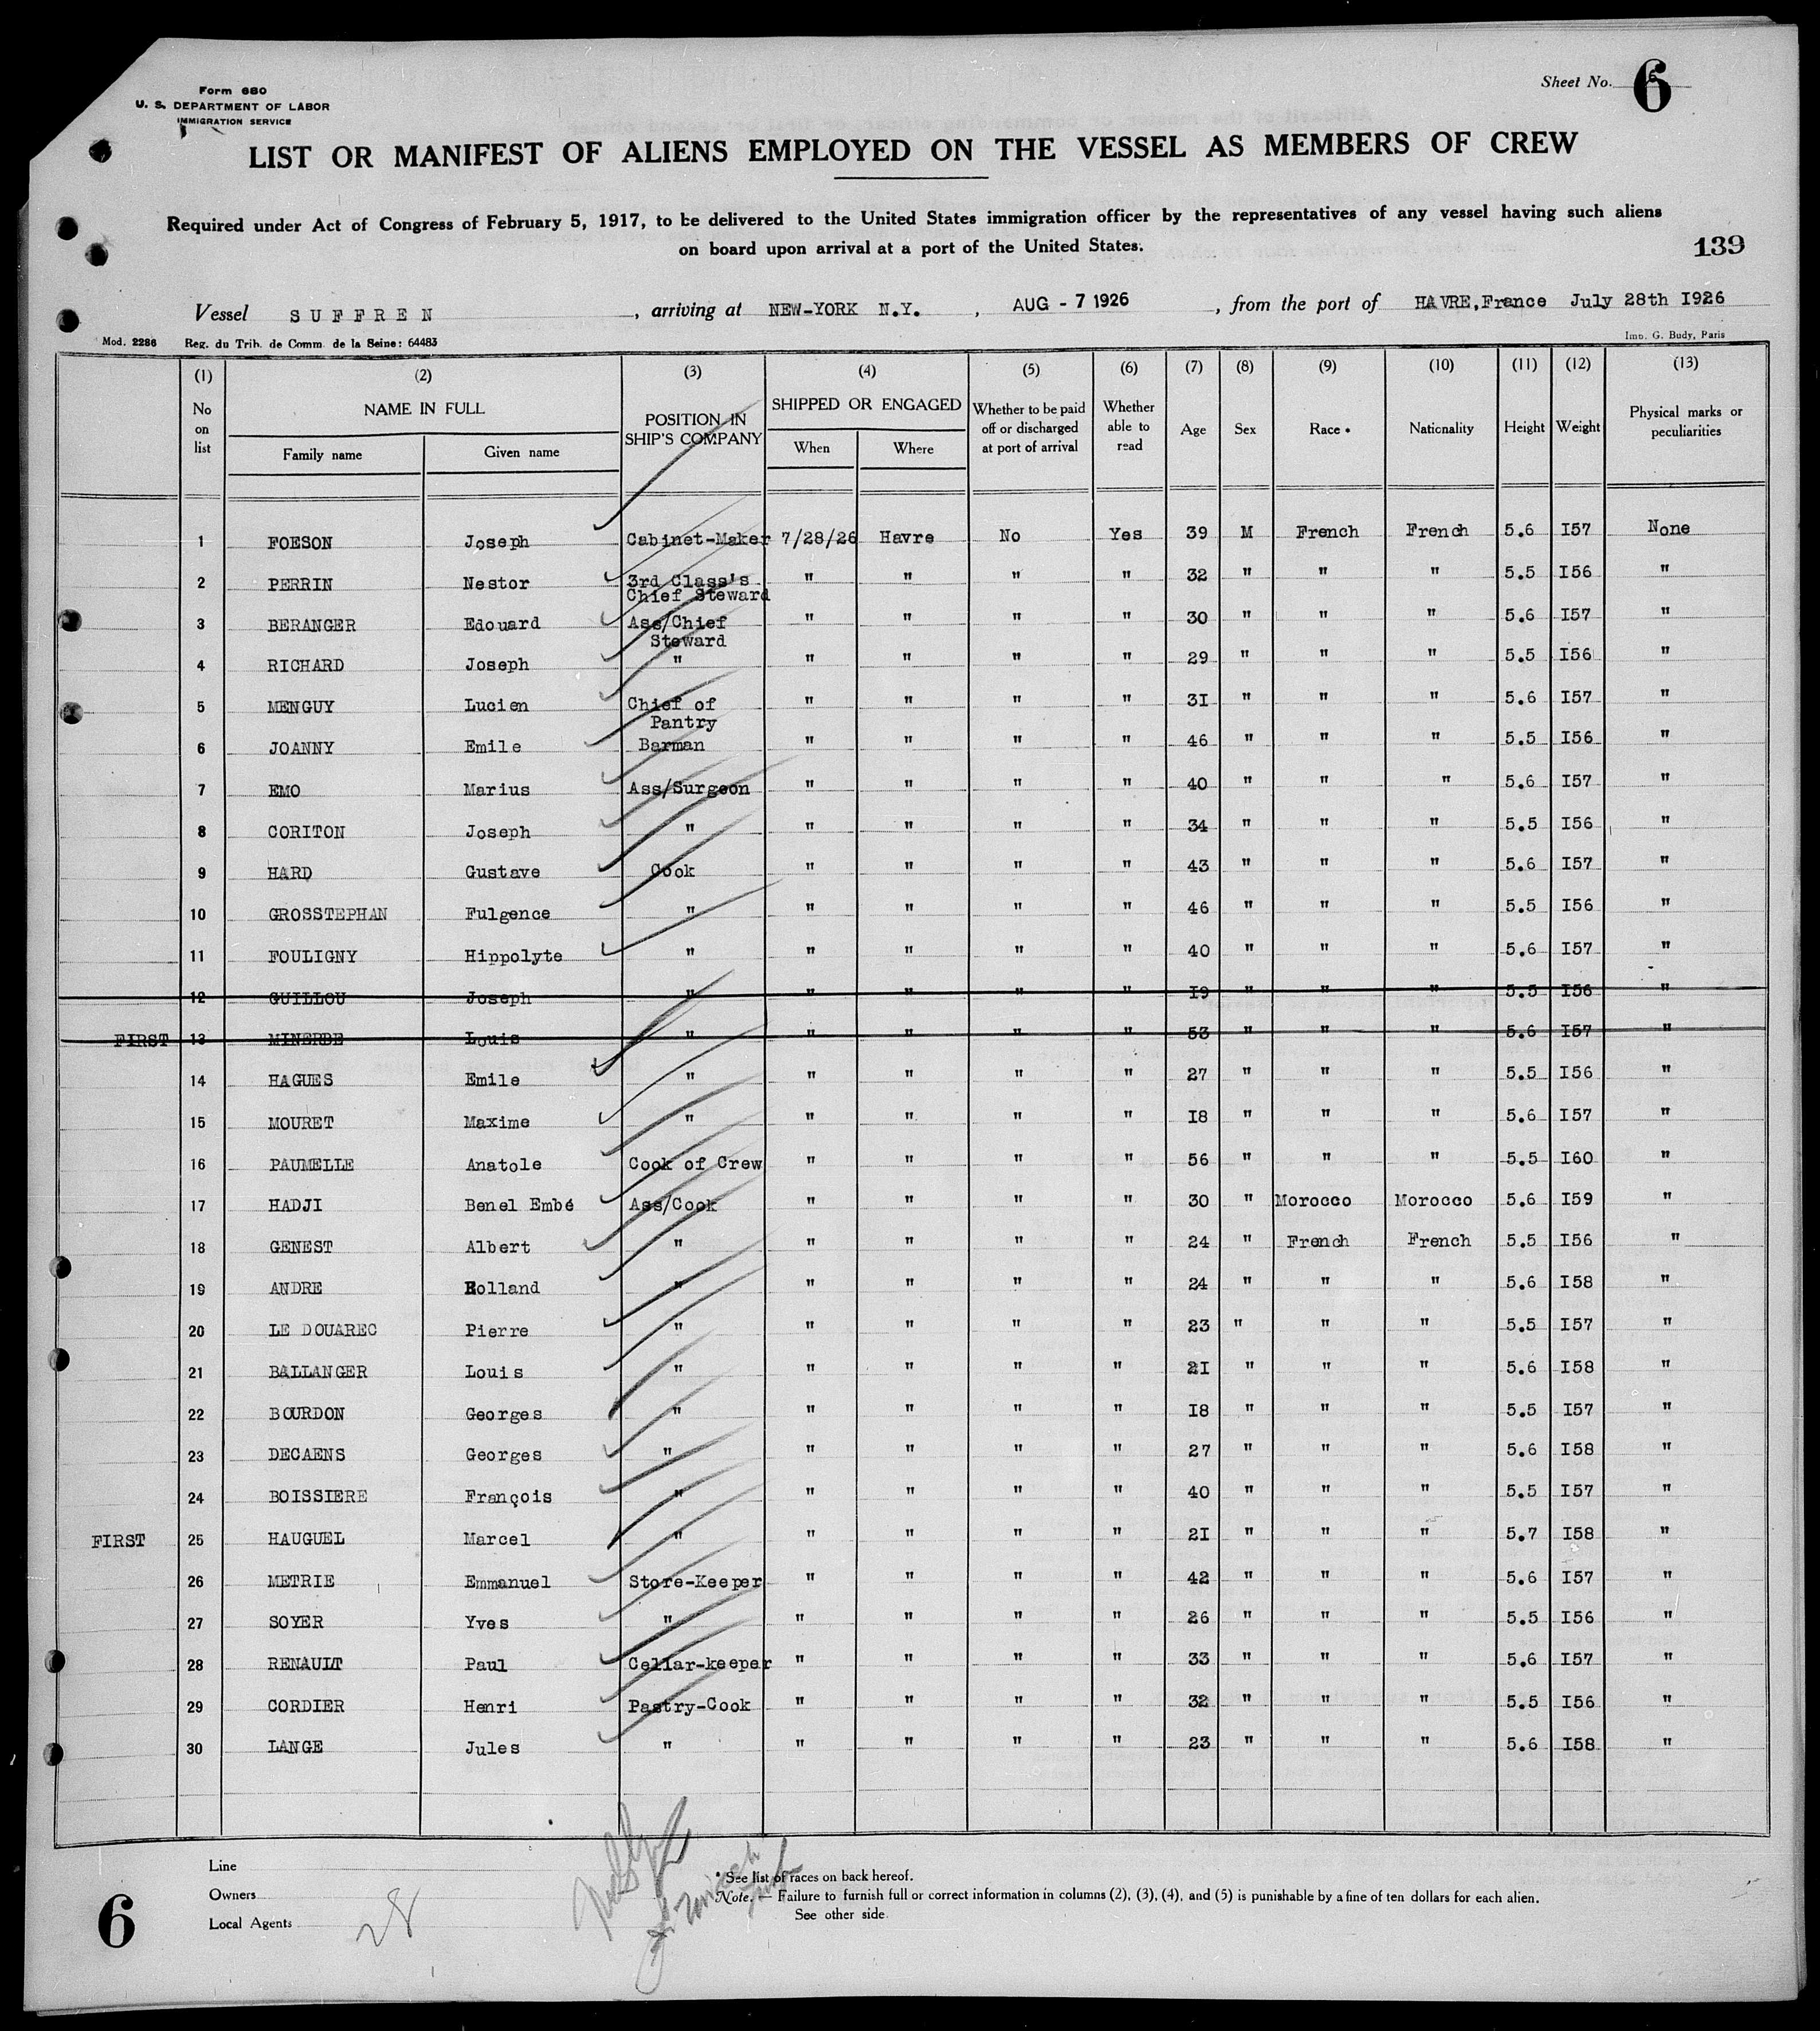 Form 680
U. S. DEPARTMENT OF LABOR
IMMIGRATION SERVICE
Sheet No. 6
LIST OR MANIFEST OF ALIENS EMPLOYED ON THE VESSEL AS MEMBERS OF CREW
Required under Act of Congress of February 5, 1917, to be delivered to the United States immigration officer by the representatives of any vessel having such aliens
on board upon arrival at a port of the United States.
139
Vessel SUFFREN, arriving at NEW-YORK N.Y., AUG - 7 1926, from the port of HAVRE, France July 28th I926
Mod. 2286 Reg. du Trib. de Comm. de la Seine: 64483 Imp. G. Budy, Paris
(1) (2) (3) (4) (5) (6) (7) (8) (9) (10) (11) (12) (13)
No on list NAME IN FULL Family name Given name POSITION IN SHIP'S COMPANY SHIPPED OR ENGAGED When Where Whether to be paid off or discharged at port of arrival Whether able to read Age Sex Race * Nationality Height Weight Physical marks or peculiarities
1 FOESON Joseph Cabinet-Maker 7/28/26 Havre No Yes 39 M French French 5.6 I57 None
2 PERRIN Nestor 3rd Class's Chief Steward " " " " 32 " " " 5.5 I56 "
3 BERANGER Edouard Ass/Chief Steward " " " " 30 " " " 5.6 I57 "
4 RICHARD Joseph " " " " " 29 " " " 5.5 I56 "
5 MENGUY Lucien Chief of Pantry " " " " 3I " " " 5.6 I57 "
6 JOANNY Emile Barman " " " " 46 " " " 5.5 I56 "
7 EMO Marius Ass/Surgeon " " " " 40 " " " 5.6 I57 "
8 CORITON Joseph " " " " " 34 " " " 5.5 I56 "
9 HARD Gustave Cook " " " " 43 " " " 5.6 I57 "
10 GROSSTEPHAN Fulgence " " " " " 46 " " " 5.5 I56 "
11 FOULIGNY Hippolyte " " " " " 40 " " " 5.6 I57 "
12 GUILLOU Joseph " " " " " I9 " " " 5.5 I56 "
FIRST 13 MINERBE Louis " " " " " 53 " " " 5.6 I57 "
14 HAGUES Emile " " " " " 27 " " " 5.5 I56 "
15 MOURET Maxime " " " " " I8 " " " 5.6 I57 "
16 PAUMELLE Anatole Cook of Crew " " " " 56 " " " 5.5 I60 "
17 HADJI Benel Embé Ass/Cook " " " " 30 " Morocco Morocco 5.6 I59 "
18 GENEST Albert " " " " " 24 " French French 5.5 I56 "
19 ANDRE Rolland " " " " " 24 " " " 5.6 I58 "
20 LE DOUAREC Pierre " " " " " 23 " " " 5.5 I57 "
21 BALLANGER Louis " " " " " 2I " " " 5.6 I58 "
22 BOURDON Georges " " " " " I8 " " " 5.5 I57 "
23 DECAENS Georges " " " " " 27 " " " 5.6 I58 "
24 BOISSIERE François " " " " " 40 " " " 5.5 I57 "
FIRST 25 HAUGUEL Marcel " " " " " 2I " " " 5.7 I58 "
26 METRIE Emmanuel Store-Keeper " " " " 42 " " " 5.6 I57 "
27 SOYER Yves " " " " " 26 " " " 5.5 I56 "
28 RENAULT Paul Cellar-keeper " " " " 33 " " " 5.6 I57 "
29 CORDIER Henri Pastry-Cook " " " " 32 " " " 5.5 I56 "
30 LANGE Jules " " " " " 23 " " " 5.6 I58 "
Line
Owners
Local Agents
28
* See list of races on back hereof.
Note. — Failure to furnish full or correct information in columns (2), (3), (4), and (5) is punishable by a fine of ten dollars for each alien.
See other side.
6